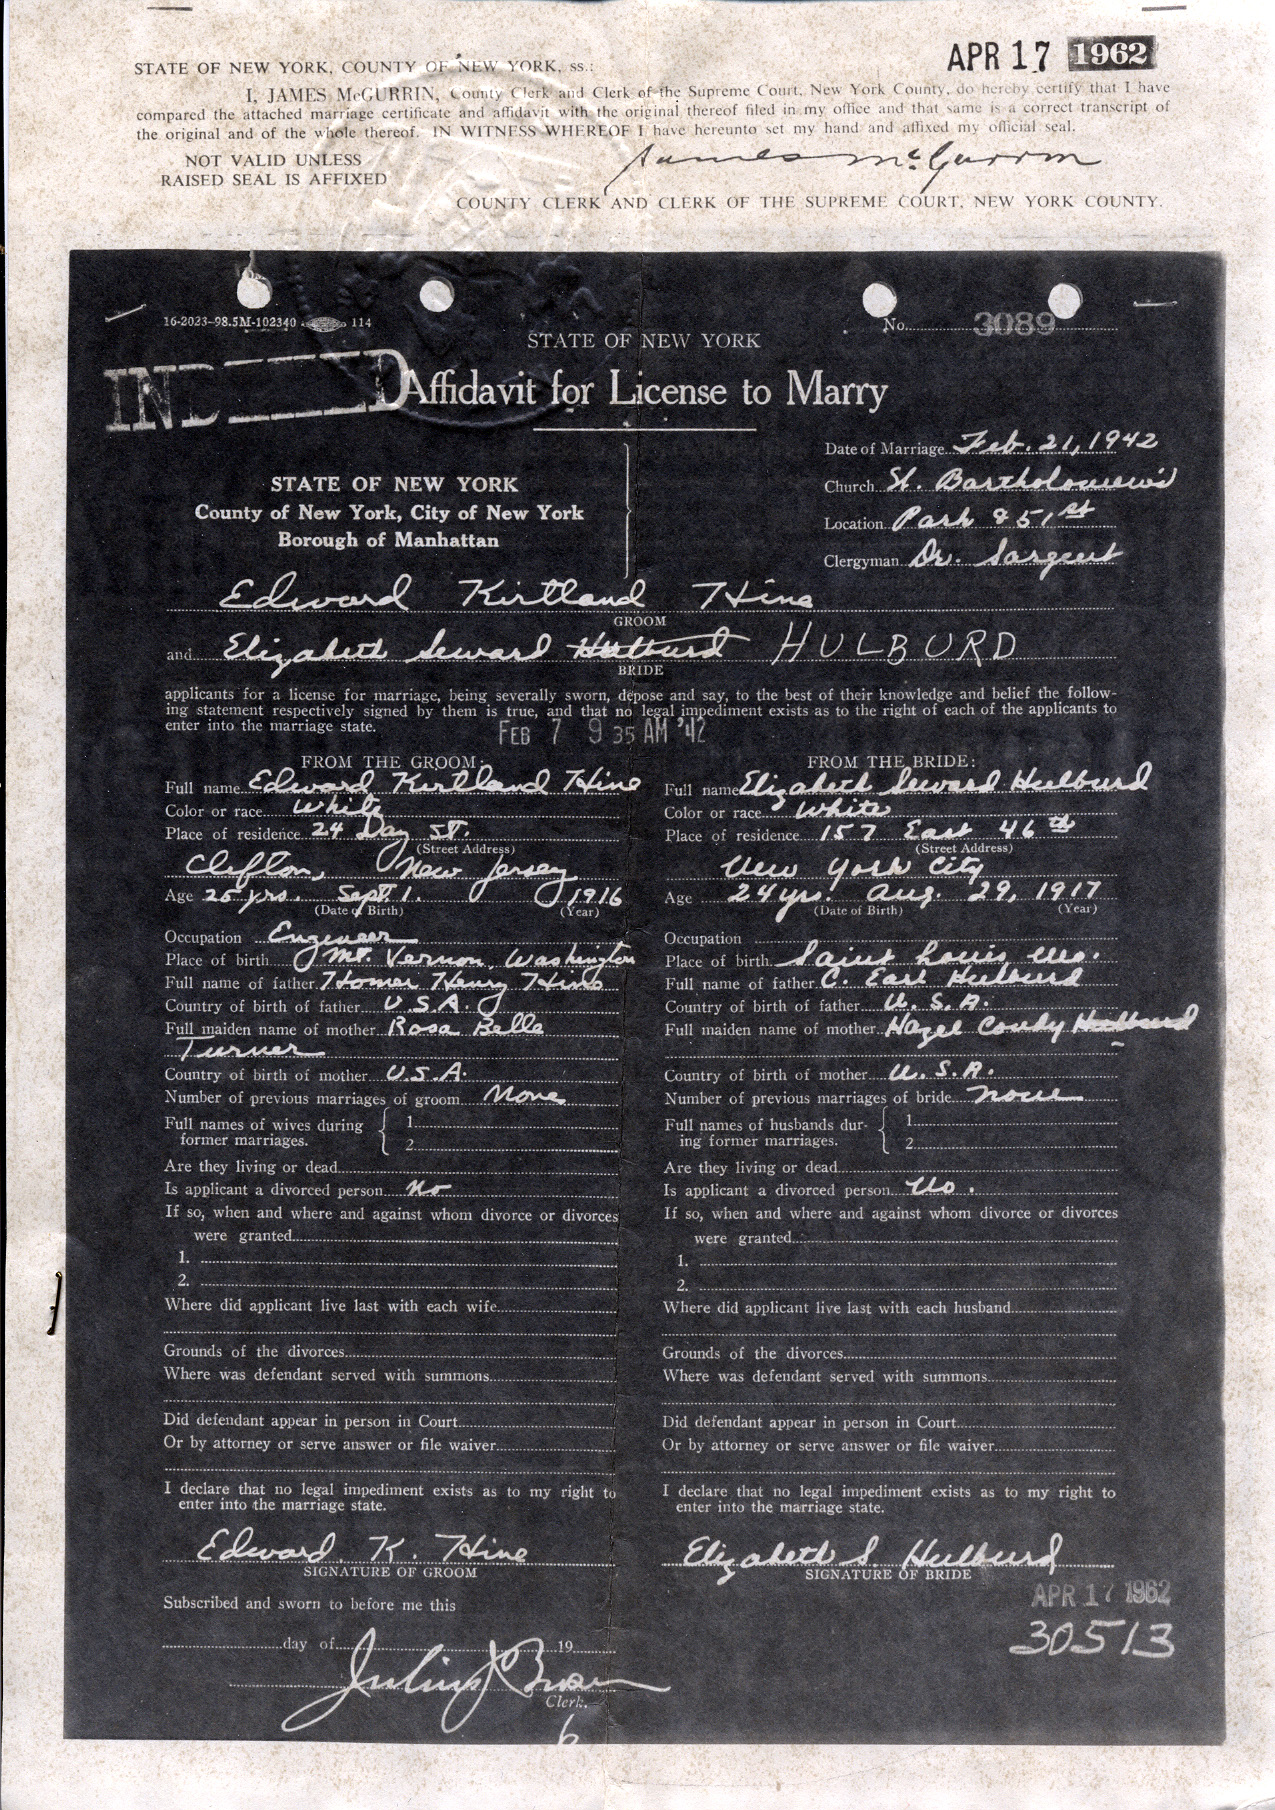 APR 17 1962
STATE OF NEW YORK, COUNTY OF NEW YORK, ss.:
I, JAMES McGURRIN, County Clerk and Clerk of the Supreme Court, New York County, do hereby certify that I have
compared the attached marriage certificate and affidavit with the original thereof filed in my office and that same is a correct transcript of
the original and of the whole thereof. IN WITNESS WHEREOF I have hereunto set my hand and affixed my official seal.
NOT VALID UNLESS
RAISED SEAL IS AFFIXED
James McGurrin
COUNTY CLERK AND CLERK OF THE SUPREME COURT, NEW YORK COUNTY.
16-2023-98.5M-102340 114
No. 3089
STATE OF NEW YORK
Affidavit for License to Marry
Date of Marriage Feb. 21, 1942
Church St. Bartholomew's
Location Park & 51st
Clergyman Dr. Sargent
STATE OF NEW YORK
County of New York, City of New York
Borough of Manhattan
Edward Kirtland Hine
GROOM
and Elizabeth Seward Hulburd HULBURD
BRIDE
applicants for a license for marriage, being severally sworn, depose and say, to the best of their knowledge and belief the follow-
ing statement respectively signed by them is true, and that no legal impediment exists as to the right of each of the applicants to
enter into the marriage state.
FEB 7 9 35 AM '42
FROM THE GROOM:
Full name Edward Kirtland Hine
Color or race White
Place of residence 24 Day St.
(Street Address)
Clifton, New Jersey
Age 25 yrs. Sept. 1. 1916
(Date of Birth) (Year)
Occupation Engineer
Place of birth Mt. Vernon, Washington
Full name of father Homer Henry Hine
Country of birth of father U.S.A.
Full maiden name of mother Rosa Belle
Turner
Country of birth of mother U.S.A.
Number of previous marriages of groom None
Full names of wives during
former marriages.
1
2
Are they living or dead
Is applicant a divorced person No
If so, when and where and against whom divorce or divorces
were granted
1.
2.
Where did applicant live last with each wife
Grounds of the divorces
Where was defendant served with summons
Did defendant appear in person in Court
Or by attorney or serve answer or file waiver
I declare that no legal impediment exists as to my right to
enter into the marriage state.
Edward K. Hine
SIGNATURE OF GROOM
Subscribed and sworn to before me this
day of 19
Clerk.
FROM THE BRIDE:
Full name Elizabeth Seward Hulburd
Color or race White
Place of residence 157 East 46th
(Street Address)
New York City
Age 24 yrs. Aug. 29, 1917
(Date of Birth) (Year)
Occupation
Place of birth Saint Louis, Mo.
Full name of father C. Earl Hulburd
Country of birth of father U.S.A.
Full maiden name of mother Hazel Condy Hulburd
Country of birth of mother U.S.A.
Number of previous marriages of bride none
Full names of husbands dur-
ing former marriages.
1
2
Are they living or dead
Is applicant a divorced person No.
If so, when and where and against whom divorce or divorces
were granted
1.
2.
Where did applicant live last with each husband
Grounds of the divorces
Where was defendant served with summons
Did defendant appear in person in Court
Or by attorney or serve answer or file waiver
I declare that no legal impediment exists as to my right to
enter into the marriage state.
Elizabeth S. Hulburd
SIGNATURE OF BRIDE
APR 17 1962
30513